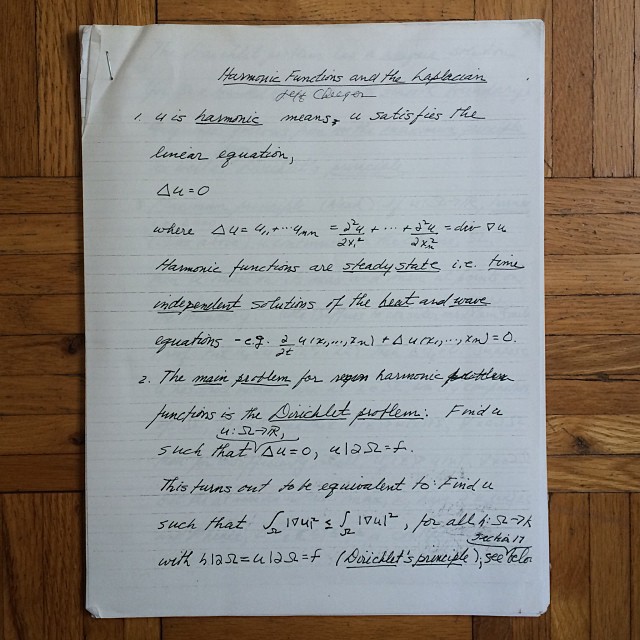 Harmonic Functions and the Laplacian
Jeff Cheeger
1. u is harmonic means, u satisfies the
linear equation,
Δu = 0
where Δu = u₁₁ + ⋯ uₙₙ = ∂²u/∂x₁² + ⋯ + ∂²u/∂xₙ² = div ∇u
Harmonic functions are steady state i.e. time
independent solutions of the heat and wave
equations - e.g. ∂/∂t u(x₁,…,xₙ) + Δu(x₁,…,xₙ) = 0.
2. The main problem for harmonic
functions is the Dirichlet problem: Find u
u: Ω→ℝ,
such that Δu = 0, u|∂Ω = f.
This turns out to be equivalent to: Find u
such that ∫_Ω |∇u|² ≤ ∫_Ω |∇u|², for all h: Ω→ℝ
Section 17
with h|∂Ω = u|∂Ω = f (Dirichlet's principle), see belo